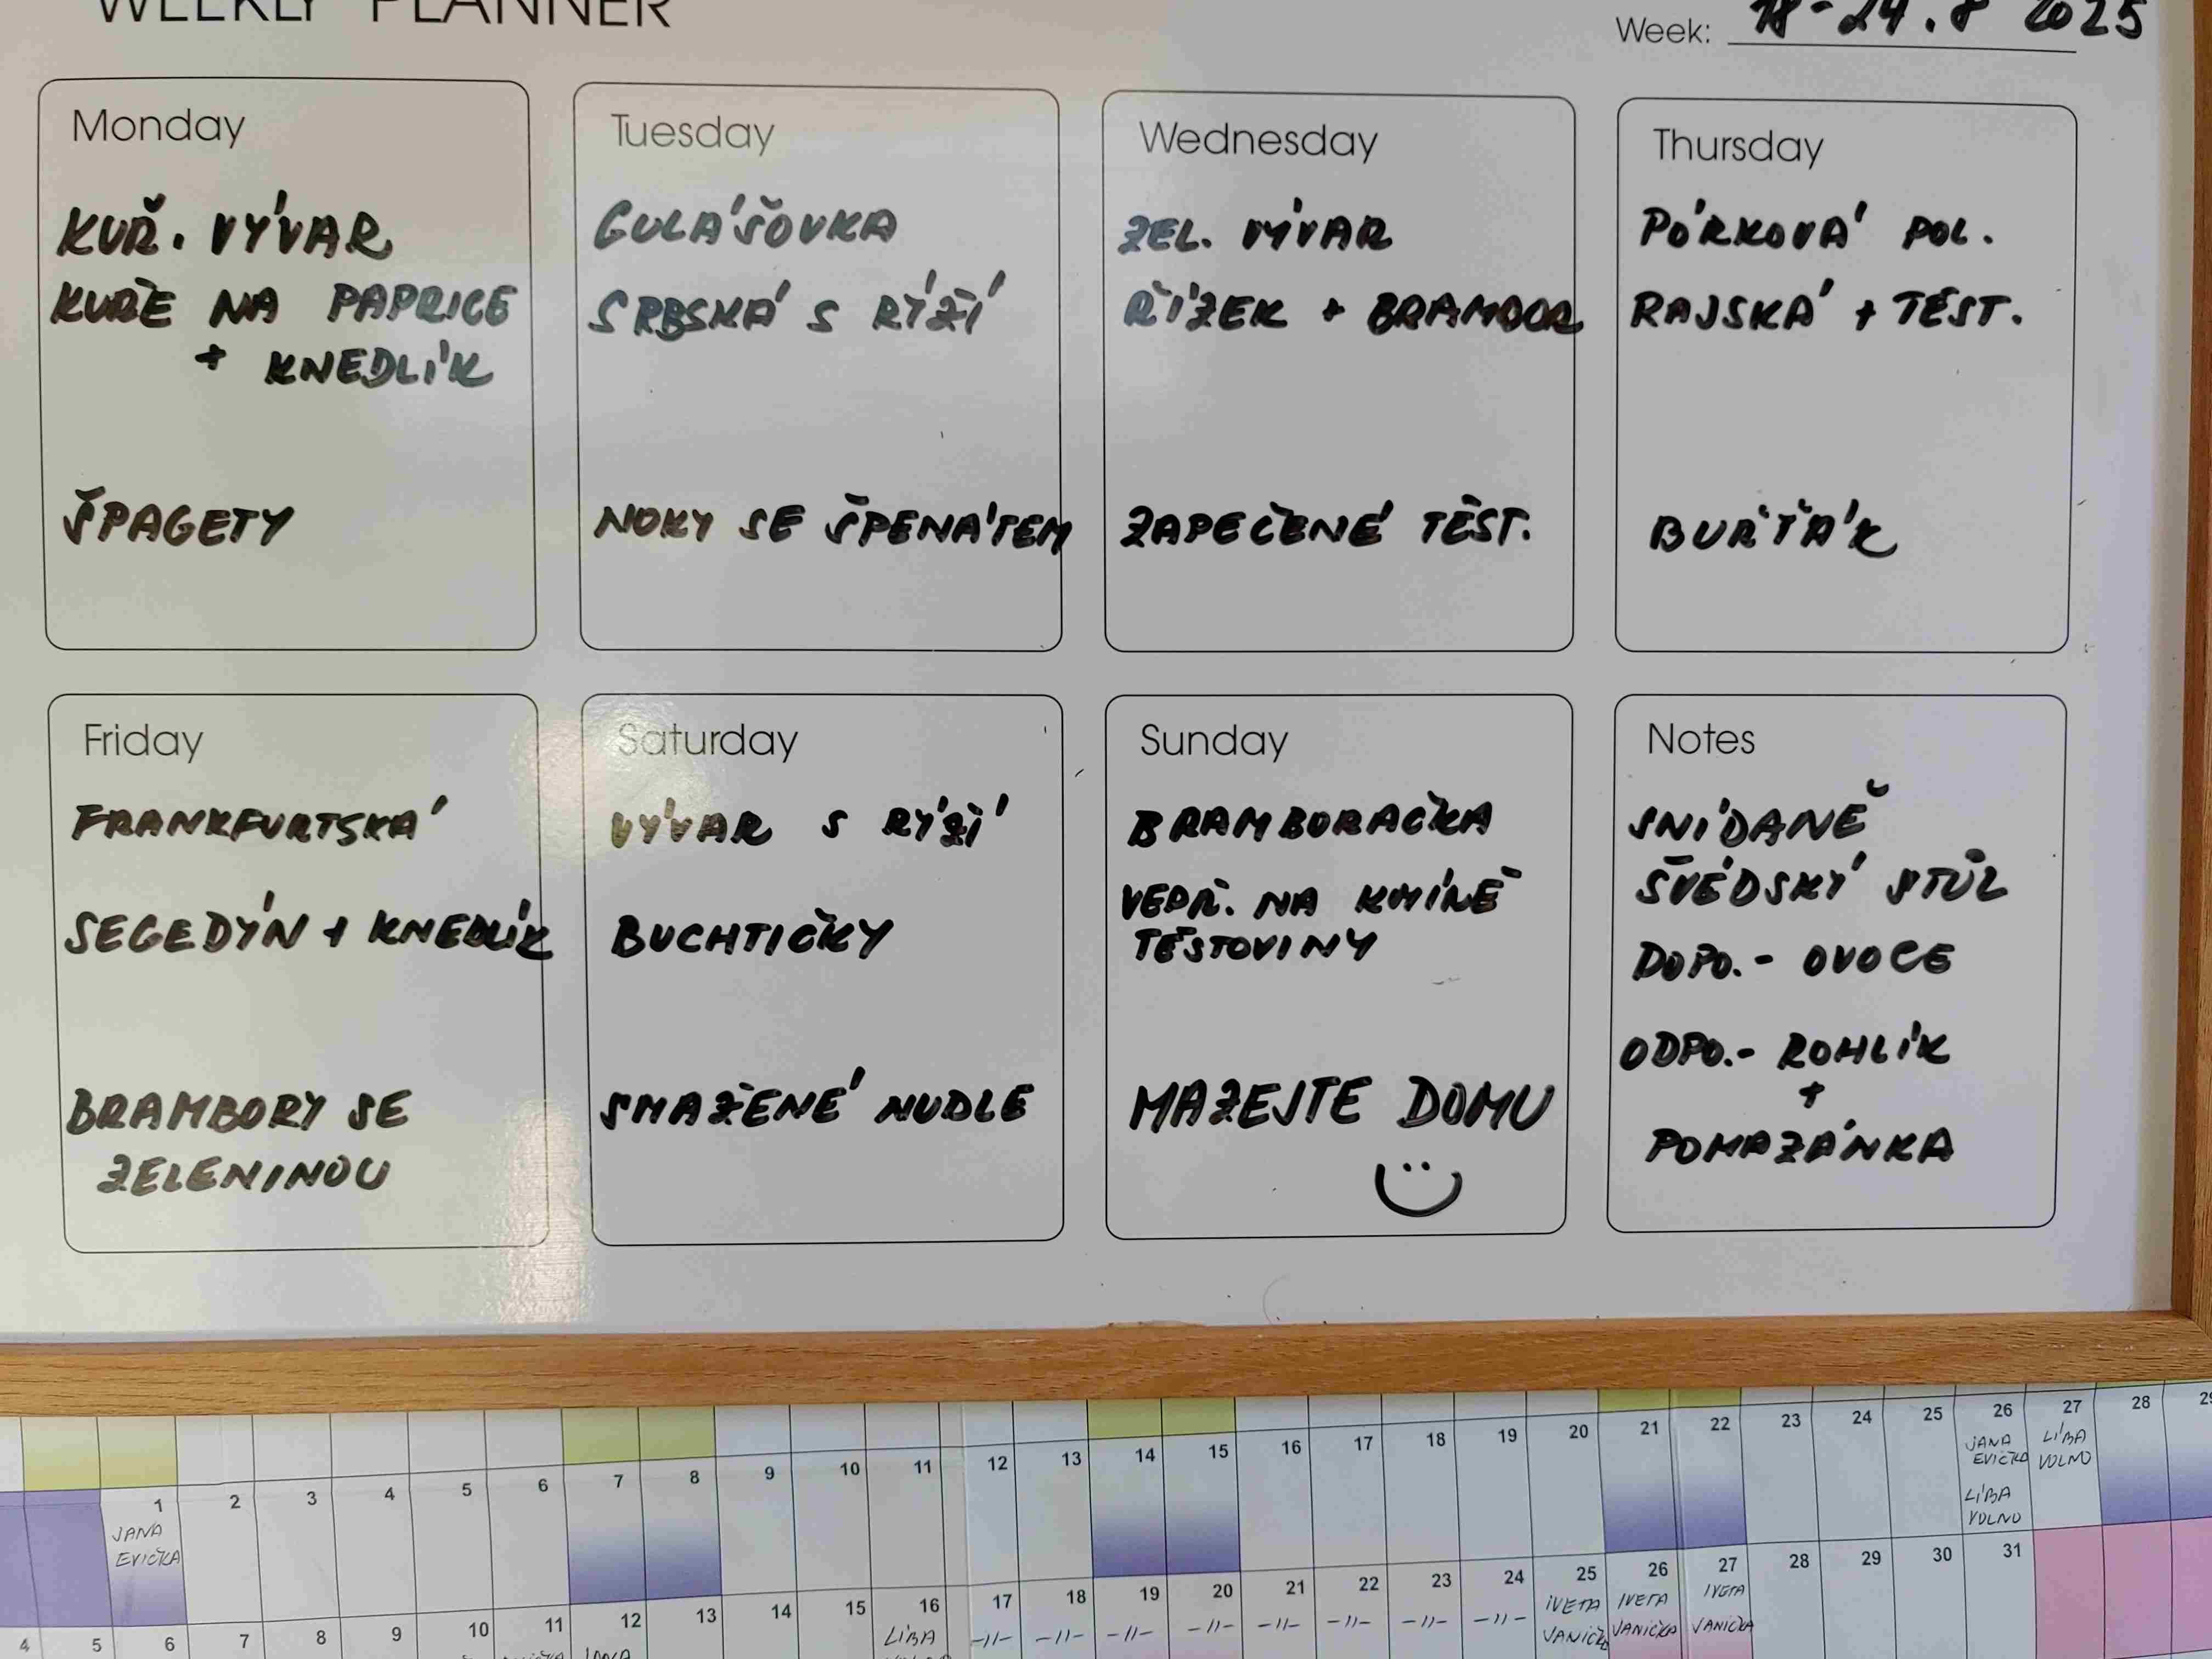 WEEKLY PLANNER
Week: 18-24.8 2025
Monday
KUŘ. VÝVAR
KUŘE NA PAPRICE
+ KNEDLÍK
ŠPAGETY
Tuesday
GULÁŠOVKA
SRBSKÁ S RÝŽÍ
NOKY SE ŠPENÁTEM
Wednesday
ZEL. VÝVAR
ŘÍZEK + BRAMBOR
ZAPEČENÉ TĚST.
Thursday
PÓRKOVÁ POL.
RAJSKÁ + TĚST.
BUŘŤÁK
Friday
FRANKFURTSKÁ
SEGEDÝN + KNEDLÍK
BRAMBORY SE
ZELENINOU
Saturday
VÝVAR S RÝŽÍ
BUCHTIČKY
SMAŽENÉ NUDLE
Sunday
BRAMBORAČKA
VEPŘ. NA KMÍNĚ
TĚSTOVINY
MAZEJTE DOMU
Notes
SNÍDANĚ
ŠVÉDSKÝ STŮL
DOPO.- OVOCE
ODPO.- ROHLÍK
+
POMAZÁNKA
1 2 3 4 5 6 7 8 9 10 11 12 13 14 15 16 17 18 19 20 21 22 23 24 25 26 27 28
JANA
EVIČKA
JANA
EVIČKA
LÍBA
VOLNO
LÍBA
VOLNO
4 5 6 7 8 9 10 11 12 13 14 15 16 17 18 19 20 21 22 23 24 25 26 27 28 29 30 31
LÍBA -11- -11- -11- -11- -11- -11- -11- -11-
IVETA
VANIČKA
IVETA
VANIČKA
IVETA
VANIČKA